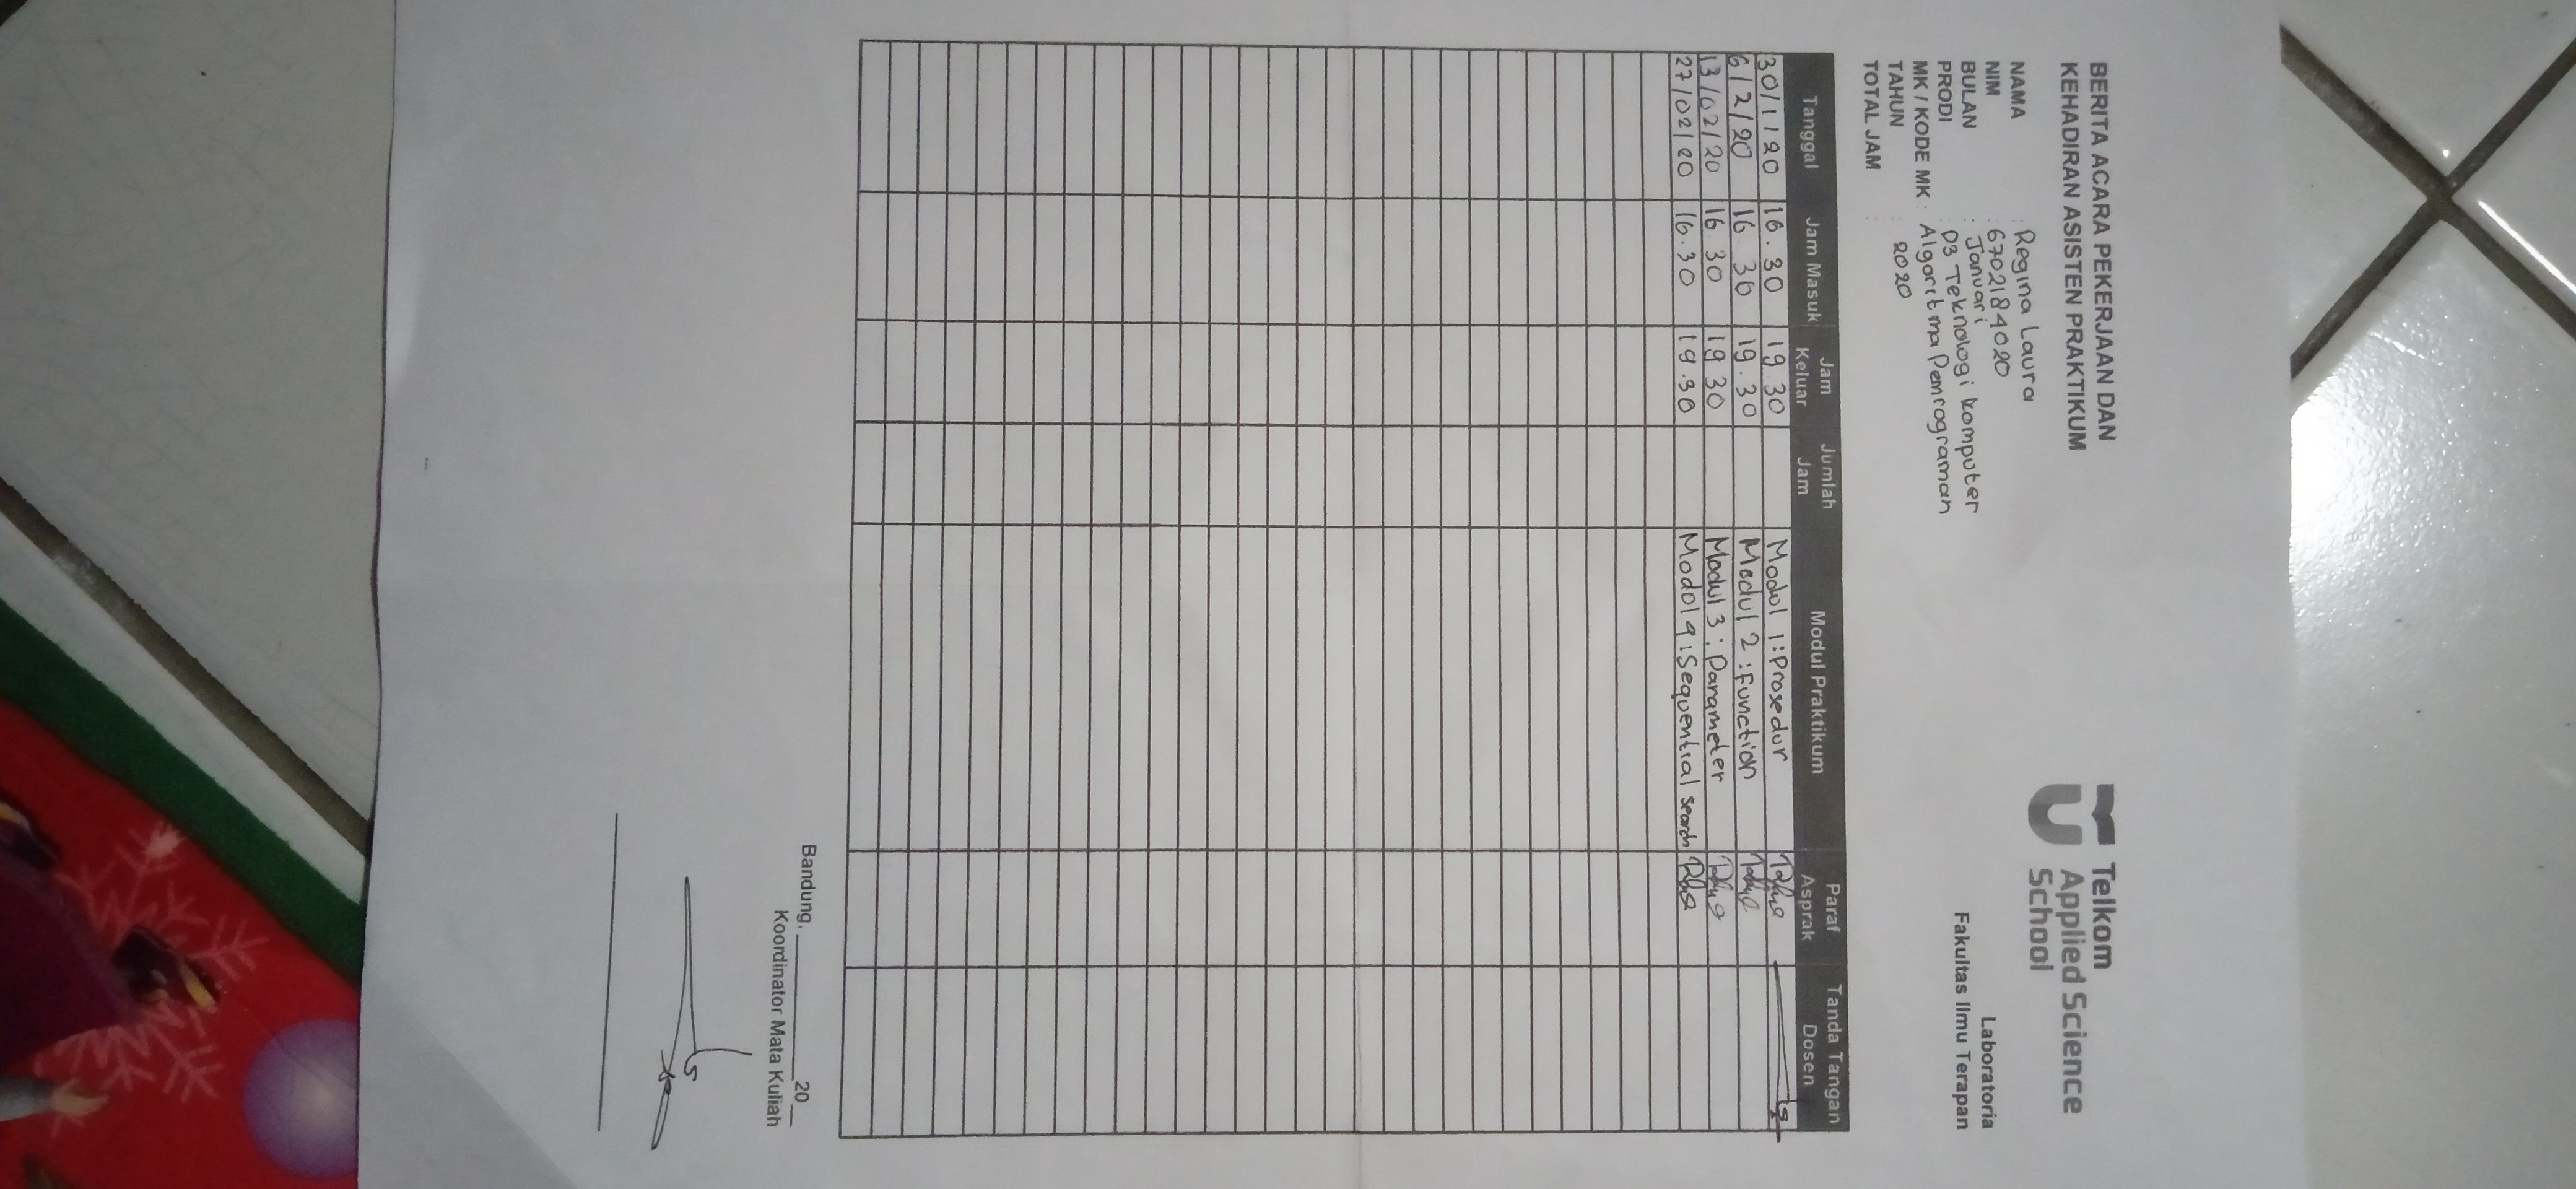 BERITA ACARA PEKERJAAN DAN
KEHADIRAN ASISTEN PRAKTIKUM
Telkom
Applied Science
School
Laboratoria
Fakultas Ilmu Terapan
NAMA : Regina Laura
NIM : 6702184020
BULAN : Januari
PRODI : D3 Teknologi komputer
MK / KODE MK : Algoritma Pemrograman
TAHUN : 2020
TOTAL JAM :
Tanggal Jam Masuk Jam Keluar Jumlah Jam Modul Praktikum Paraf Asprak Tanda Tangan Dosen
30/1/20 16.30 19 30 Modul 1: Prosedur
6/2/20 16 30 19.30 Modul 2 : Function
13/02/20 16.30 19 30 Modul 3 : Parameter
27/02/20 16.30 19.30 Modul 4 : Sequential Search
Bandung, ____________20__
Koordinator Mata Kuliah